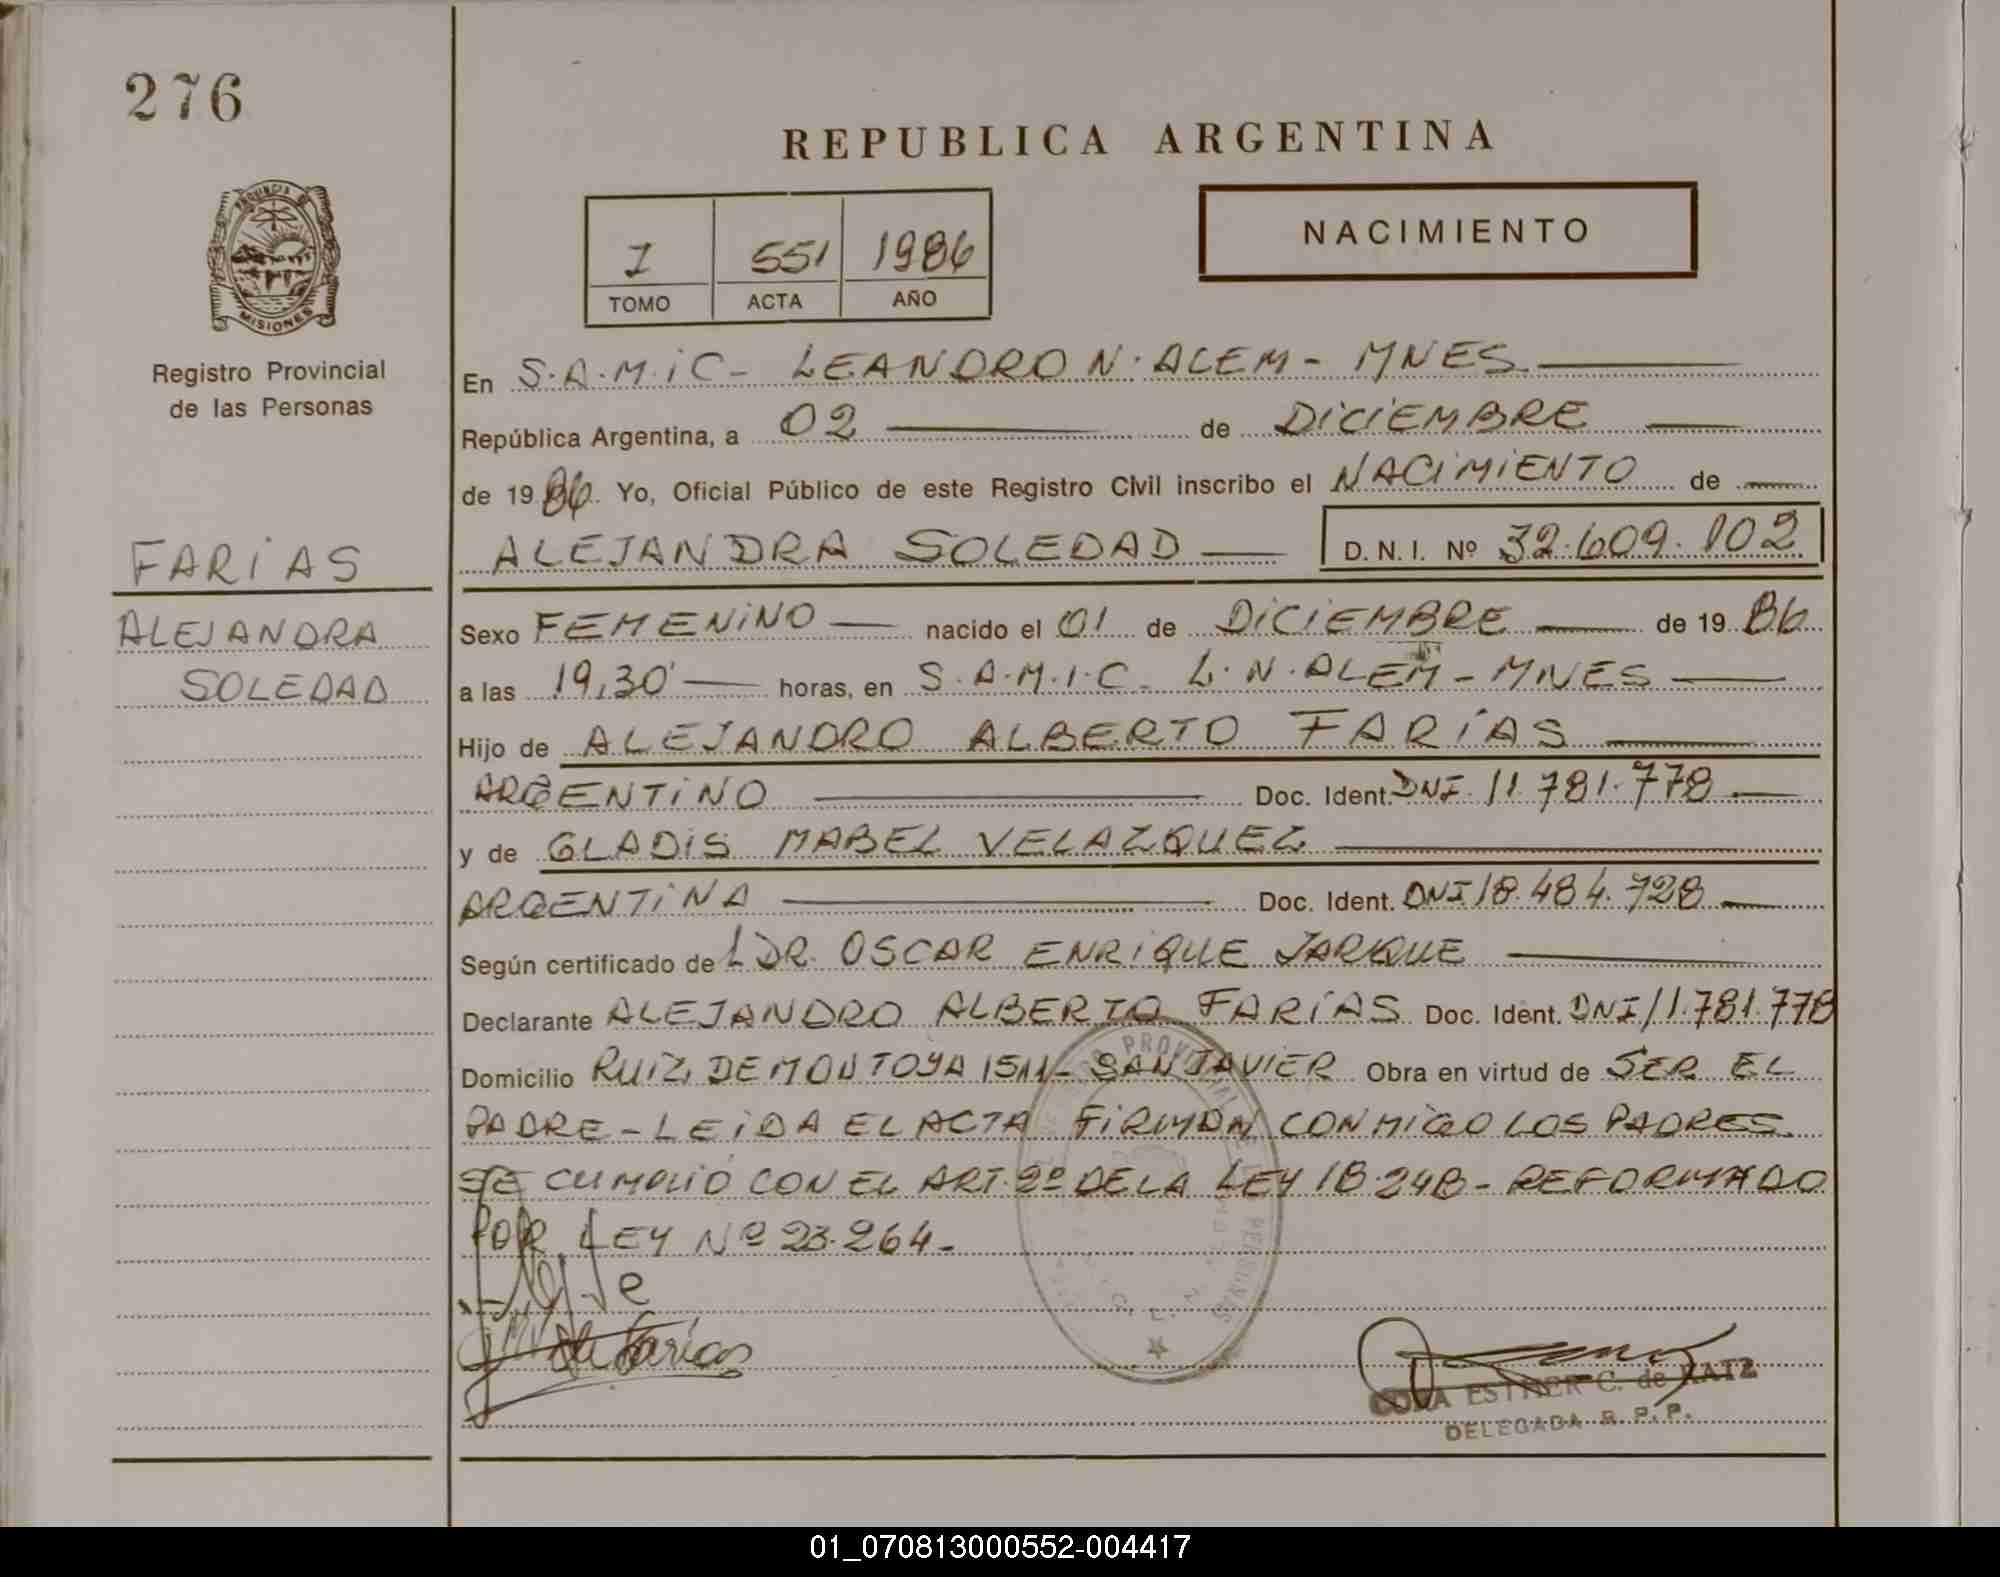 276
REPUBLICA ARGENTINA
NACIMIENTO
I 551 1986
TOMO ACTA AÑO
PROVINCIA DE
MISIONES
Registro Provincial
de las Personas
En S.A.M.iC- LEANDRO N. ALEM - MNES.
República Argentina, a 02 de DiCiEMBRE
de 1986. Yo, Oficial Público de este Registro Civil inscribo el NACiMiENTO de
ALEJANDRA SOLEDAD D.N.I. Nº 32.609.102
FARiAS
ALEJANDRA
SOLEDAD
Sexo FEMENiNO nacido el 01 de DiCiEMBRE de 1986
a las 19,30' horas, en S.A.M.I.C- L.N.ALEM - MNES
Hijo de ALEJANDRO ALBERTO FARíAS
ARGENTiNO Doc. Ident. DNI. 11.781.778
y de GLADiS MABEL VELAZQUEZ
ARGENTiNA Doc. Ident. DNI 18.484.728
Según certificado de DR. OSCAR ENRiQUE JARQUE
Declarante ALEJANDRO ALBERTO FARíAS Doc. Ident. DNI 11.781.778
Domicilio RUiZ DE MONTOYA - SAN JAViER Obra en virtud de SER EL
PADRE - LEiDA EL ACTA FiRMAN CONMiGO LOS PADRES.
SE CUMPLiÓ CON EL ART. 2º DE LA LEY 18.248 - REFORMADO
POR LEY Nº 23.264-
de Farias
ESTHER C. de KATZ
DELEGADA R.P.P.
01_070813000552-004417